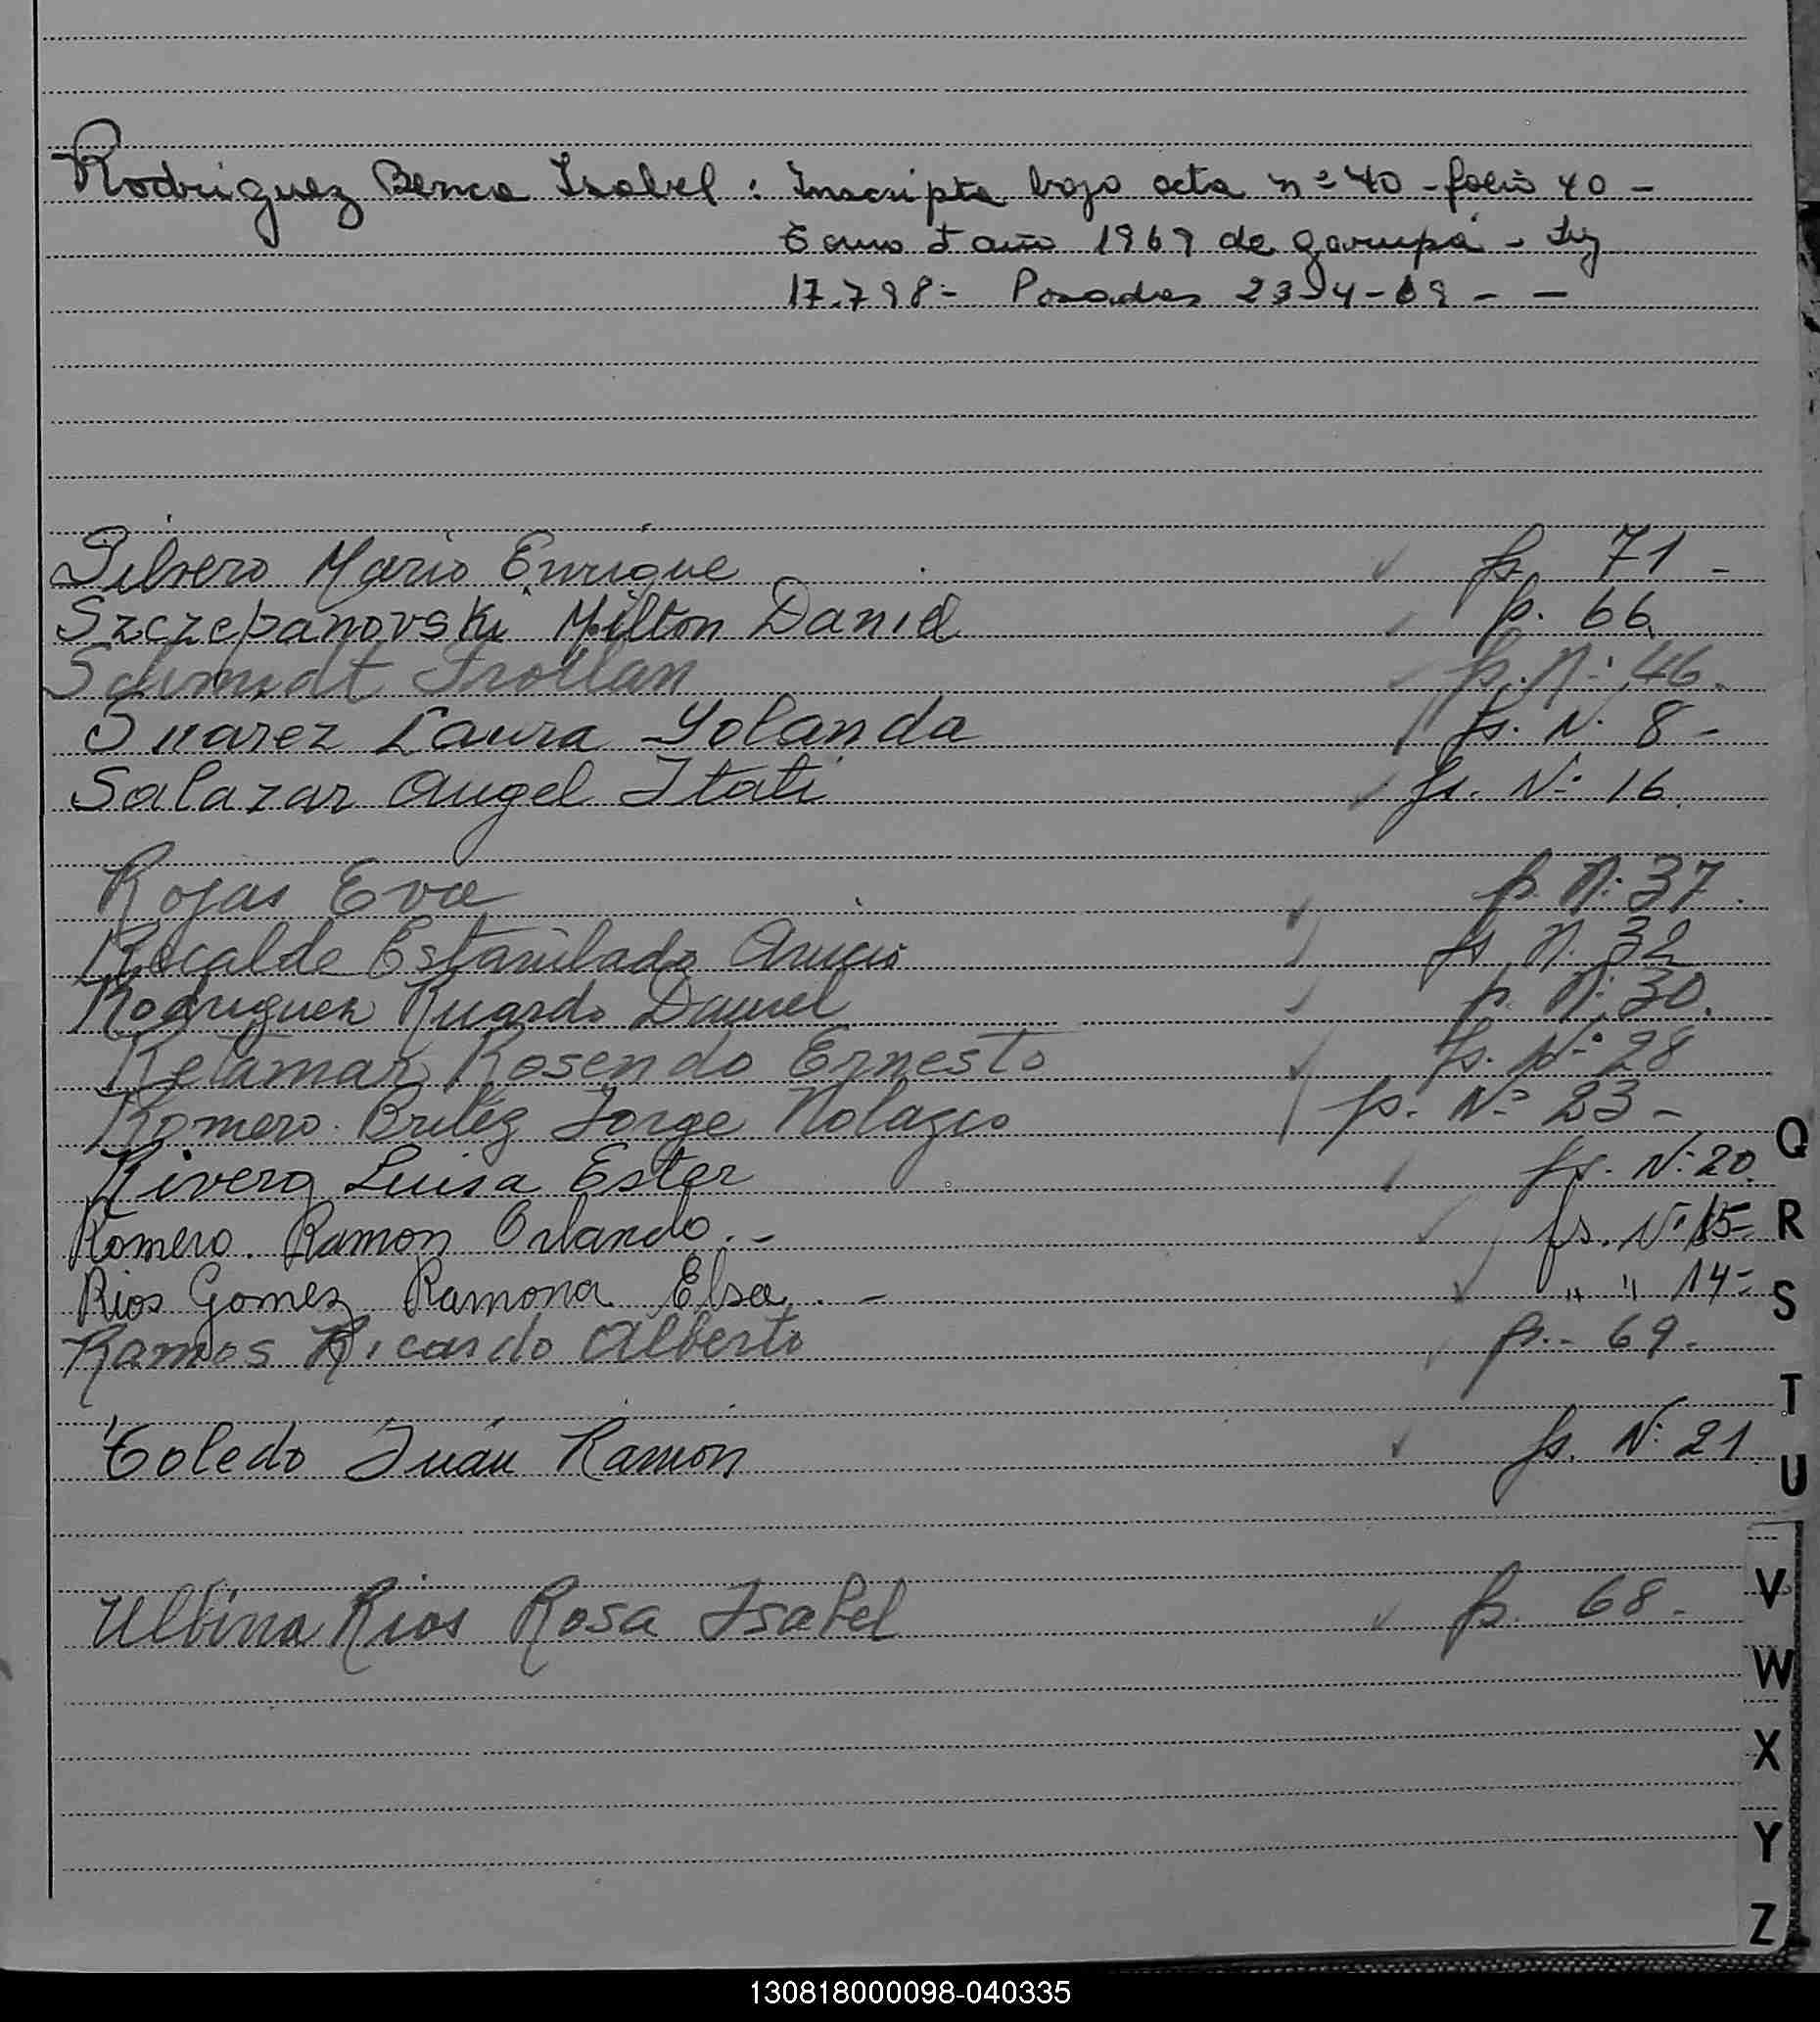 Rodriguez Benca Isabel: Inscripta bajo acta nº 40 - folio 40 -
Tomo I año 1969 de Garupá - Ley
17.798 - Posadas 23-4-69 - -
Silvero Mario Enrique fs. 71 -
Szczepanovski Milton Daniel fs. 66.
Schmidt Froilan fs. Nº 46.
Suarez Laura Yolanda fs. Nº 8 -
Salazar Angel Itati fs. Nº 16.
Rojas Eva fs. Nº 37.
Recalde Estanilado Anicio fs Nº 32
Rodriguez Ricardo Daniel fs. Nº 30.
Retamar Rosendo Ernesto fs. Nº 28
Romero Britez Jorge Nolazco fs. Nº 23 -
Rivero Luisa Ester fs. Nº 20.
Romero. Ramon Orlando. - fs. Nº 15 -
Rios Gomez Ramona Elsa. - " " 14 -
Ramos Ricardo Alberto fs. - 69.
Toledo Juán Ramón fs. Nº 21
Ulbina Rios Rosa Isabel fs. 68 -
Q
R
S
T
U
V
W
X
Y
Z
130818000098-040335